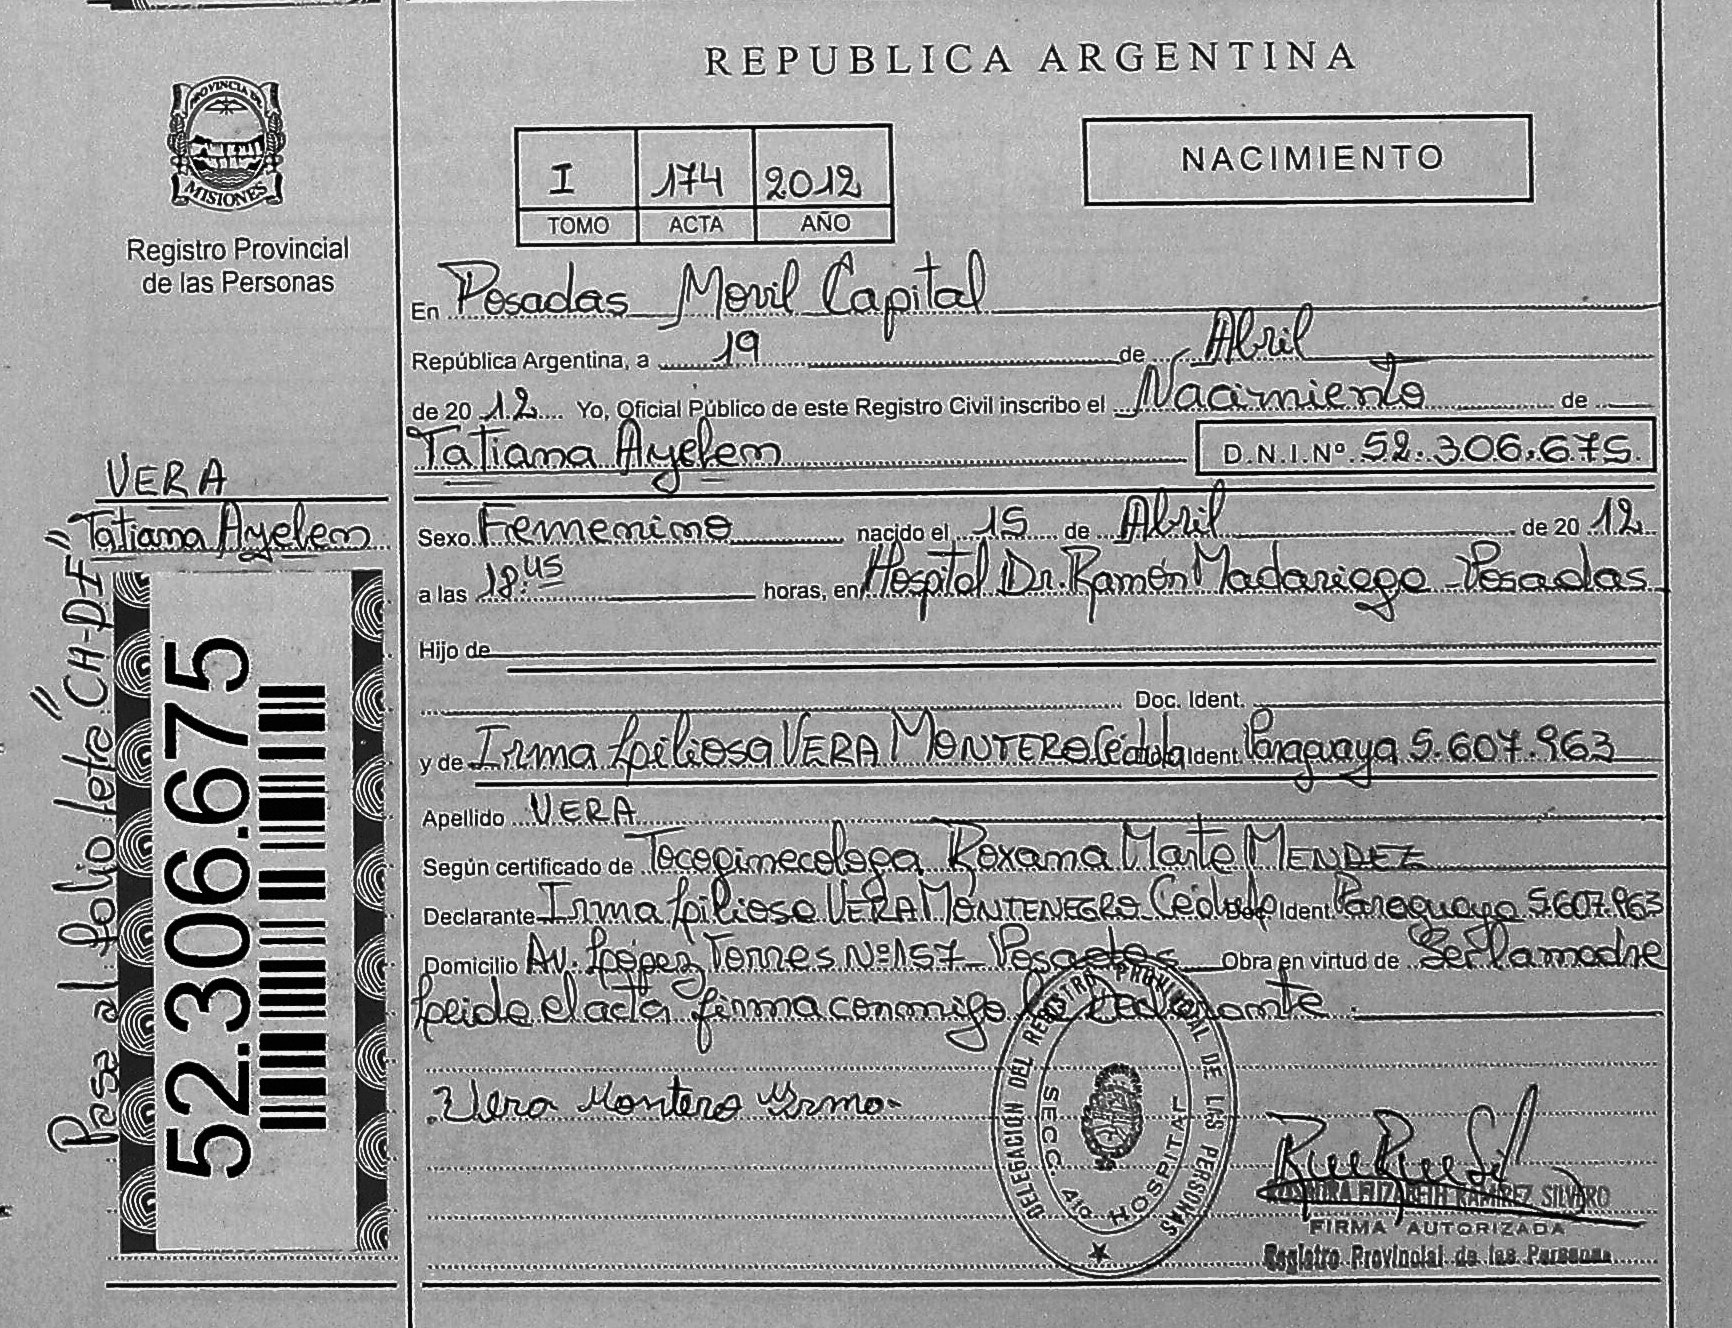 REPUBLICA ARGENTINA
PROVINCIA DE
MISIONES
Registro Provincial
de las Personas
I 174 2012
TOMO ACTA AÑO
NACIMIENTO
En Posadas Movil Capital
República Argentina, a 19 de Abril
de 2012 Yo, Oficial Público de este Registro Civil inscribo el Nacimiento de
Tatiana Ayelem D.N.I.Nº 52.306.675.
VERA
Tatiana Ayelem
Pasa al folio letra "CH-DI"
52.306.675
Sexo Femenino nacido el 15 de Abril de 2012
a las 18:45 horas, en Hospital Dr. Ramón Madariaga - Posadas
Hijo de
Doc. Ident.
y de Irma VERA MONTERO Cédula Ident. Paraguaya 5.607.963
Apellido VERA
Según certificado de Tocoginecologa Roxana Marta MENDEZ
Declarante Irma VERA MONTENEGRO Cédula Ident. Paraguaya 5.607.963
Domicilio Av. López Torres Nº 157 - Posadas Obra en virtud de Ser la madre
Leida el acta firma conmigo la declarante.
Vera Montero Yrma
DELEGACIÓN DEL REGISTRO PROVINCIAL DE LAS PERSONAS
SECC. 4ta HOSPITAL
ELIZABETH RAMIREZ SILVERO
FIRMA AUTORIZADA
Registro Provincial de las Personas